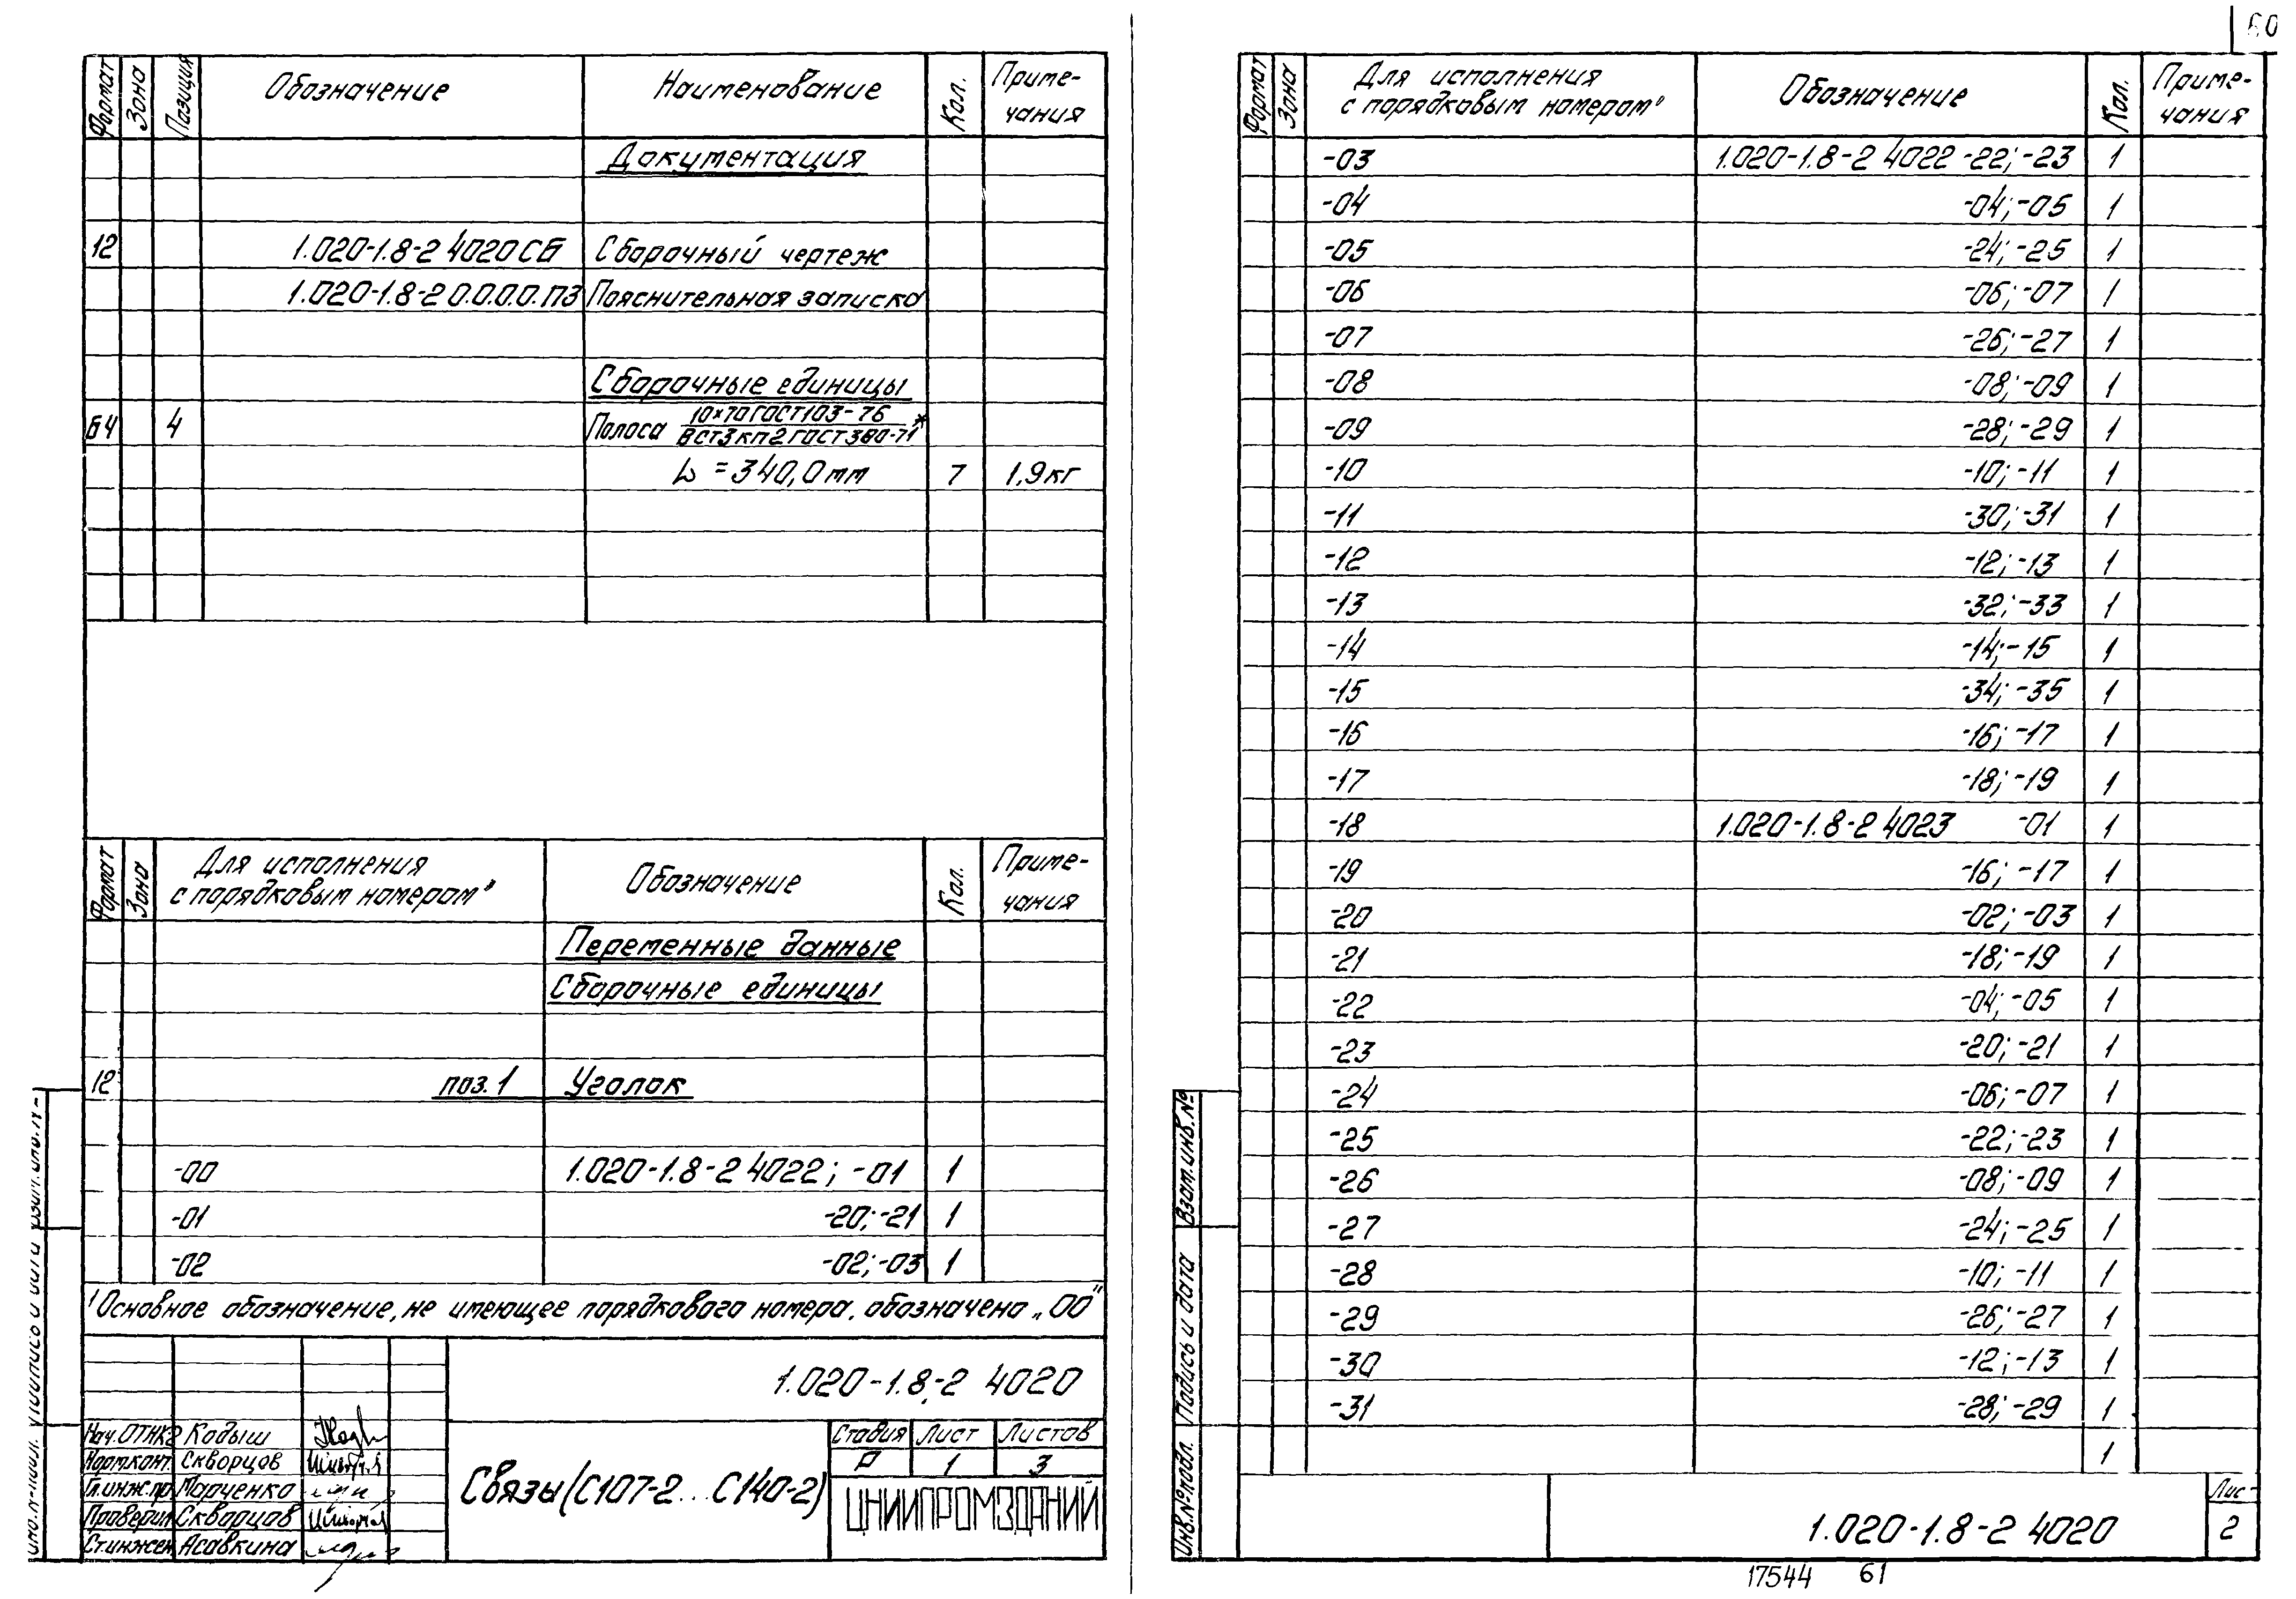 60
Формат Зона Позиция Обозначение Наименование Кол. Приме-
чания
Документация
12 1.020-1.8-2 4020СБ Сборочный чертеж
1.020-1.8-2 0.0.0.0.ПЗ Пояснительная записка
Сборочные единицы
БЧ 4 Полоса 10×70 ГОСТ 103-76
ВСт3кп2 ГОСТ 380-71*
L = 340,0 мм 7 1,9 кг
Формат Зона Для исполнения
с порядковым номером¹ Обозначение Кол. Приме-
чания
Переменные данные
Сборочные единицы
12 поз. 1 Уголок
-00 1.020-1.8-2 4022; -01 1
-01 -20; -21 1
-02 -02; -03 1
¹Основное обозначение, не имеющее порядкового номера, обозначено „00"
1.020-1.8-2 4020
Нач.ОТНК2 Кодыш
Норм.конт. Скворцов
Гл.инж.пр. Марченко
Проверил Скворцов
Ст.инжен. Асавкина
Связы (С107-2...С140-2)
Стадия Лист Листов
Р 1 3
ЦНИИПРОМЗДАНИЙ
Формат Зона Для исполнения
с порядковым номером¹ Обозначение Кол. Приме-
чания
-03 1.020-1.8-2 4022 -22; -23 1
-04 -04; -05 1
-05 -24; -25 1
-06 -06; -07 1
-07 -26; -27 1
-08 -08; -09 1
-09 -28; -29 1
-10 -10; -11 1
-11 -30; -31 1
-12 -12; -13 1
-13 -32; -33 1
-14 -14; -15 1
-15 -34; -35 1
-16 -16; -17 1
-17 -18; -19 1
-18 1.020-1.8-2 4023 -01 1
-19 -16; -17 1
-20 -02; -03 1
-21 -18; -19 1
-22 -04; -05 1
-23 -20; -21 1
-24 -06; -07 1
-25 -22; -23 1
-26 -08; -09 1
-27 -24; -25 1
-28 -10; -11 1
-29 -26; -27 1
-30 -12; -13 1
-31 -28; -29 1
1
Инв.№ подл. Подись и дата Взам.инв.№
1.020-1.8-2 4020
Лис
2
17544 61